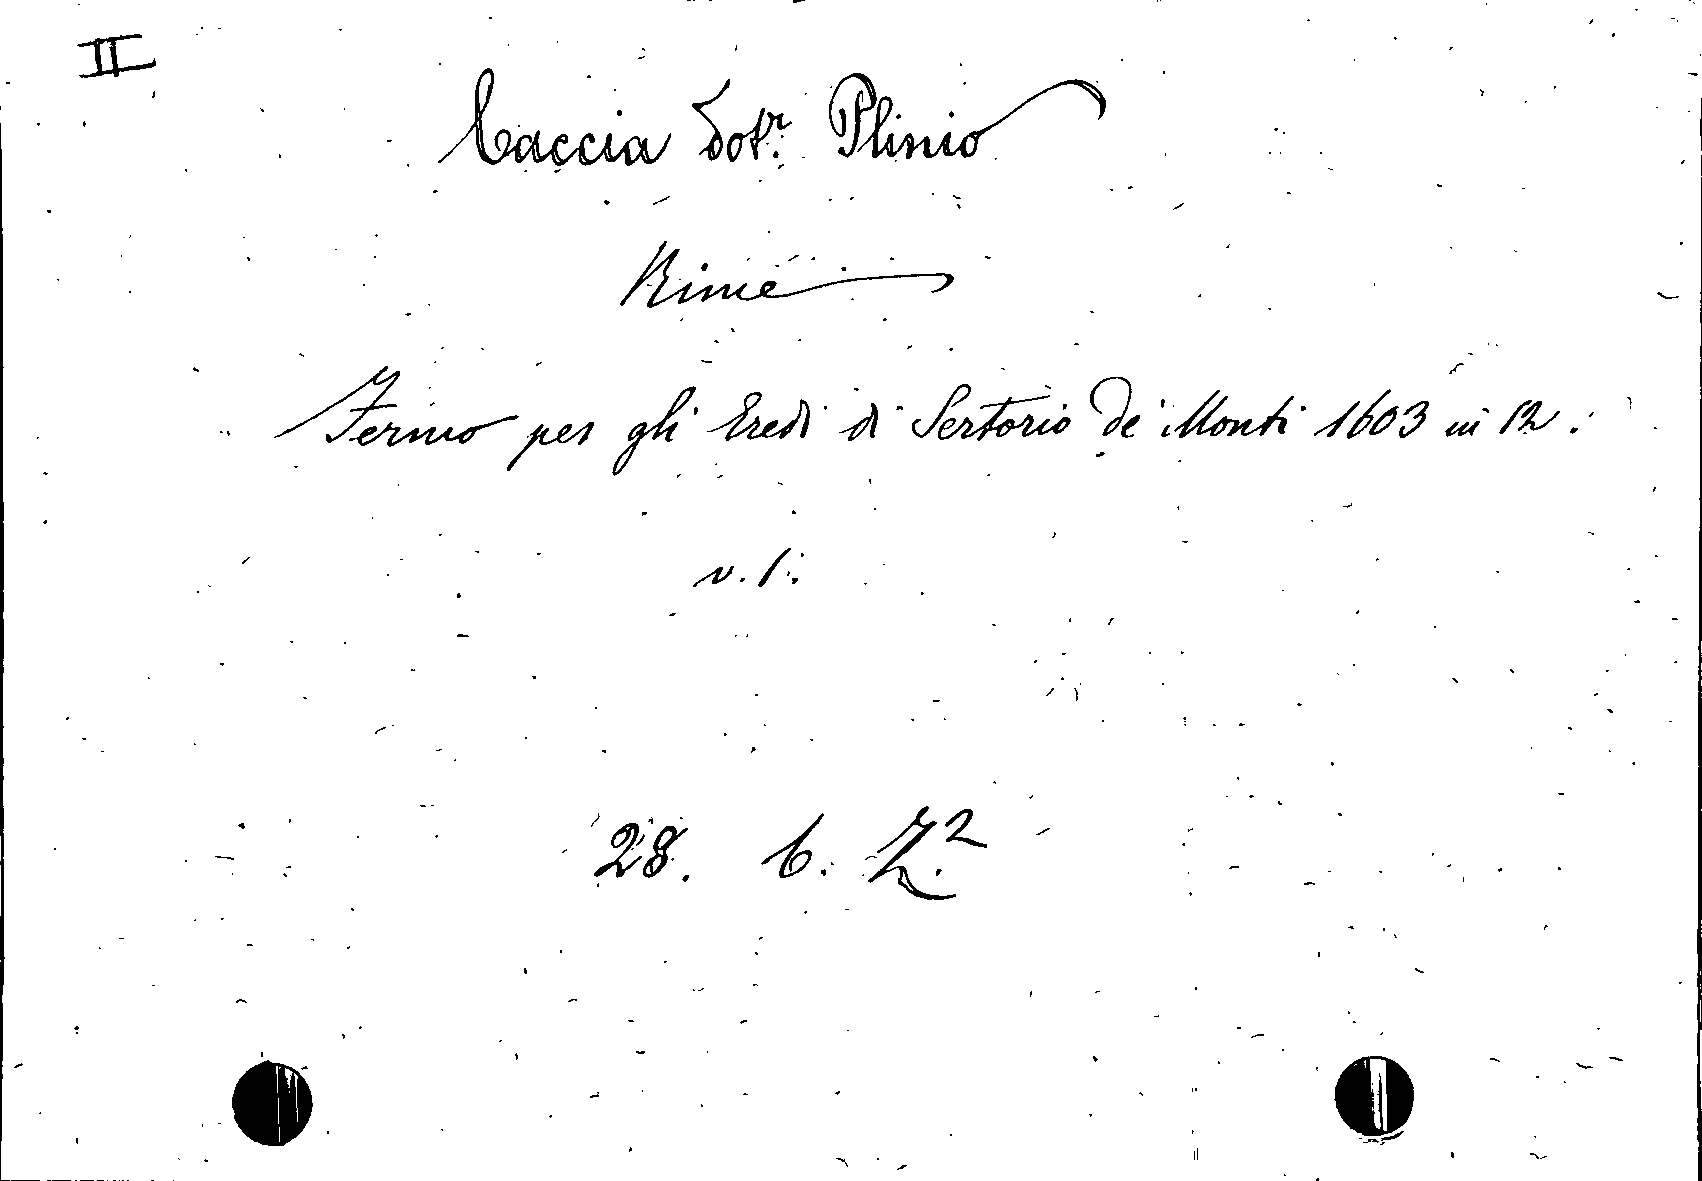 II
Caccia Dot.r Plinio
Rime
Fermo per gli Eredi di Sertorio de' Monti 1603 in 12.
v. 1.
28. 6. Z.2